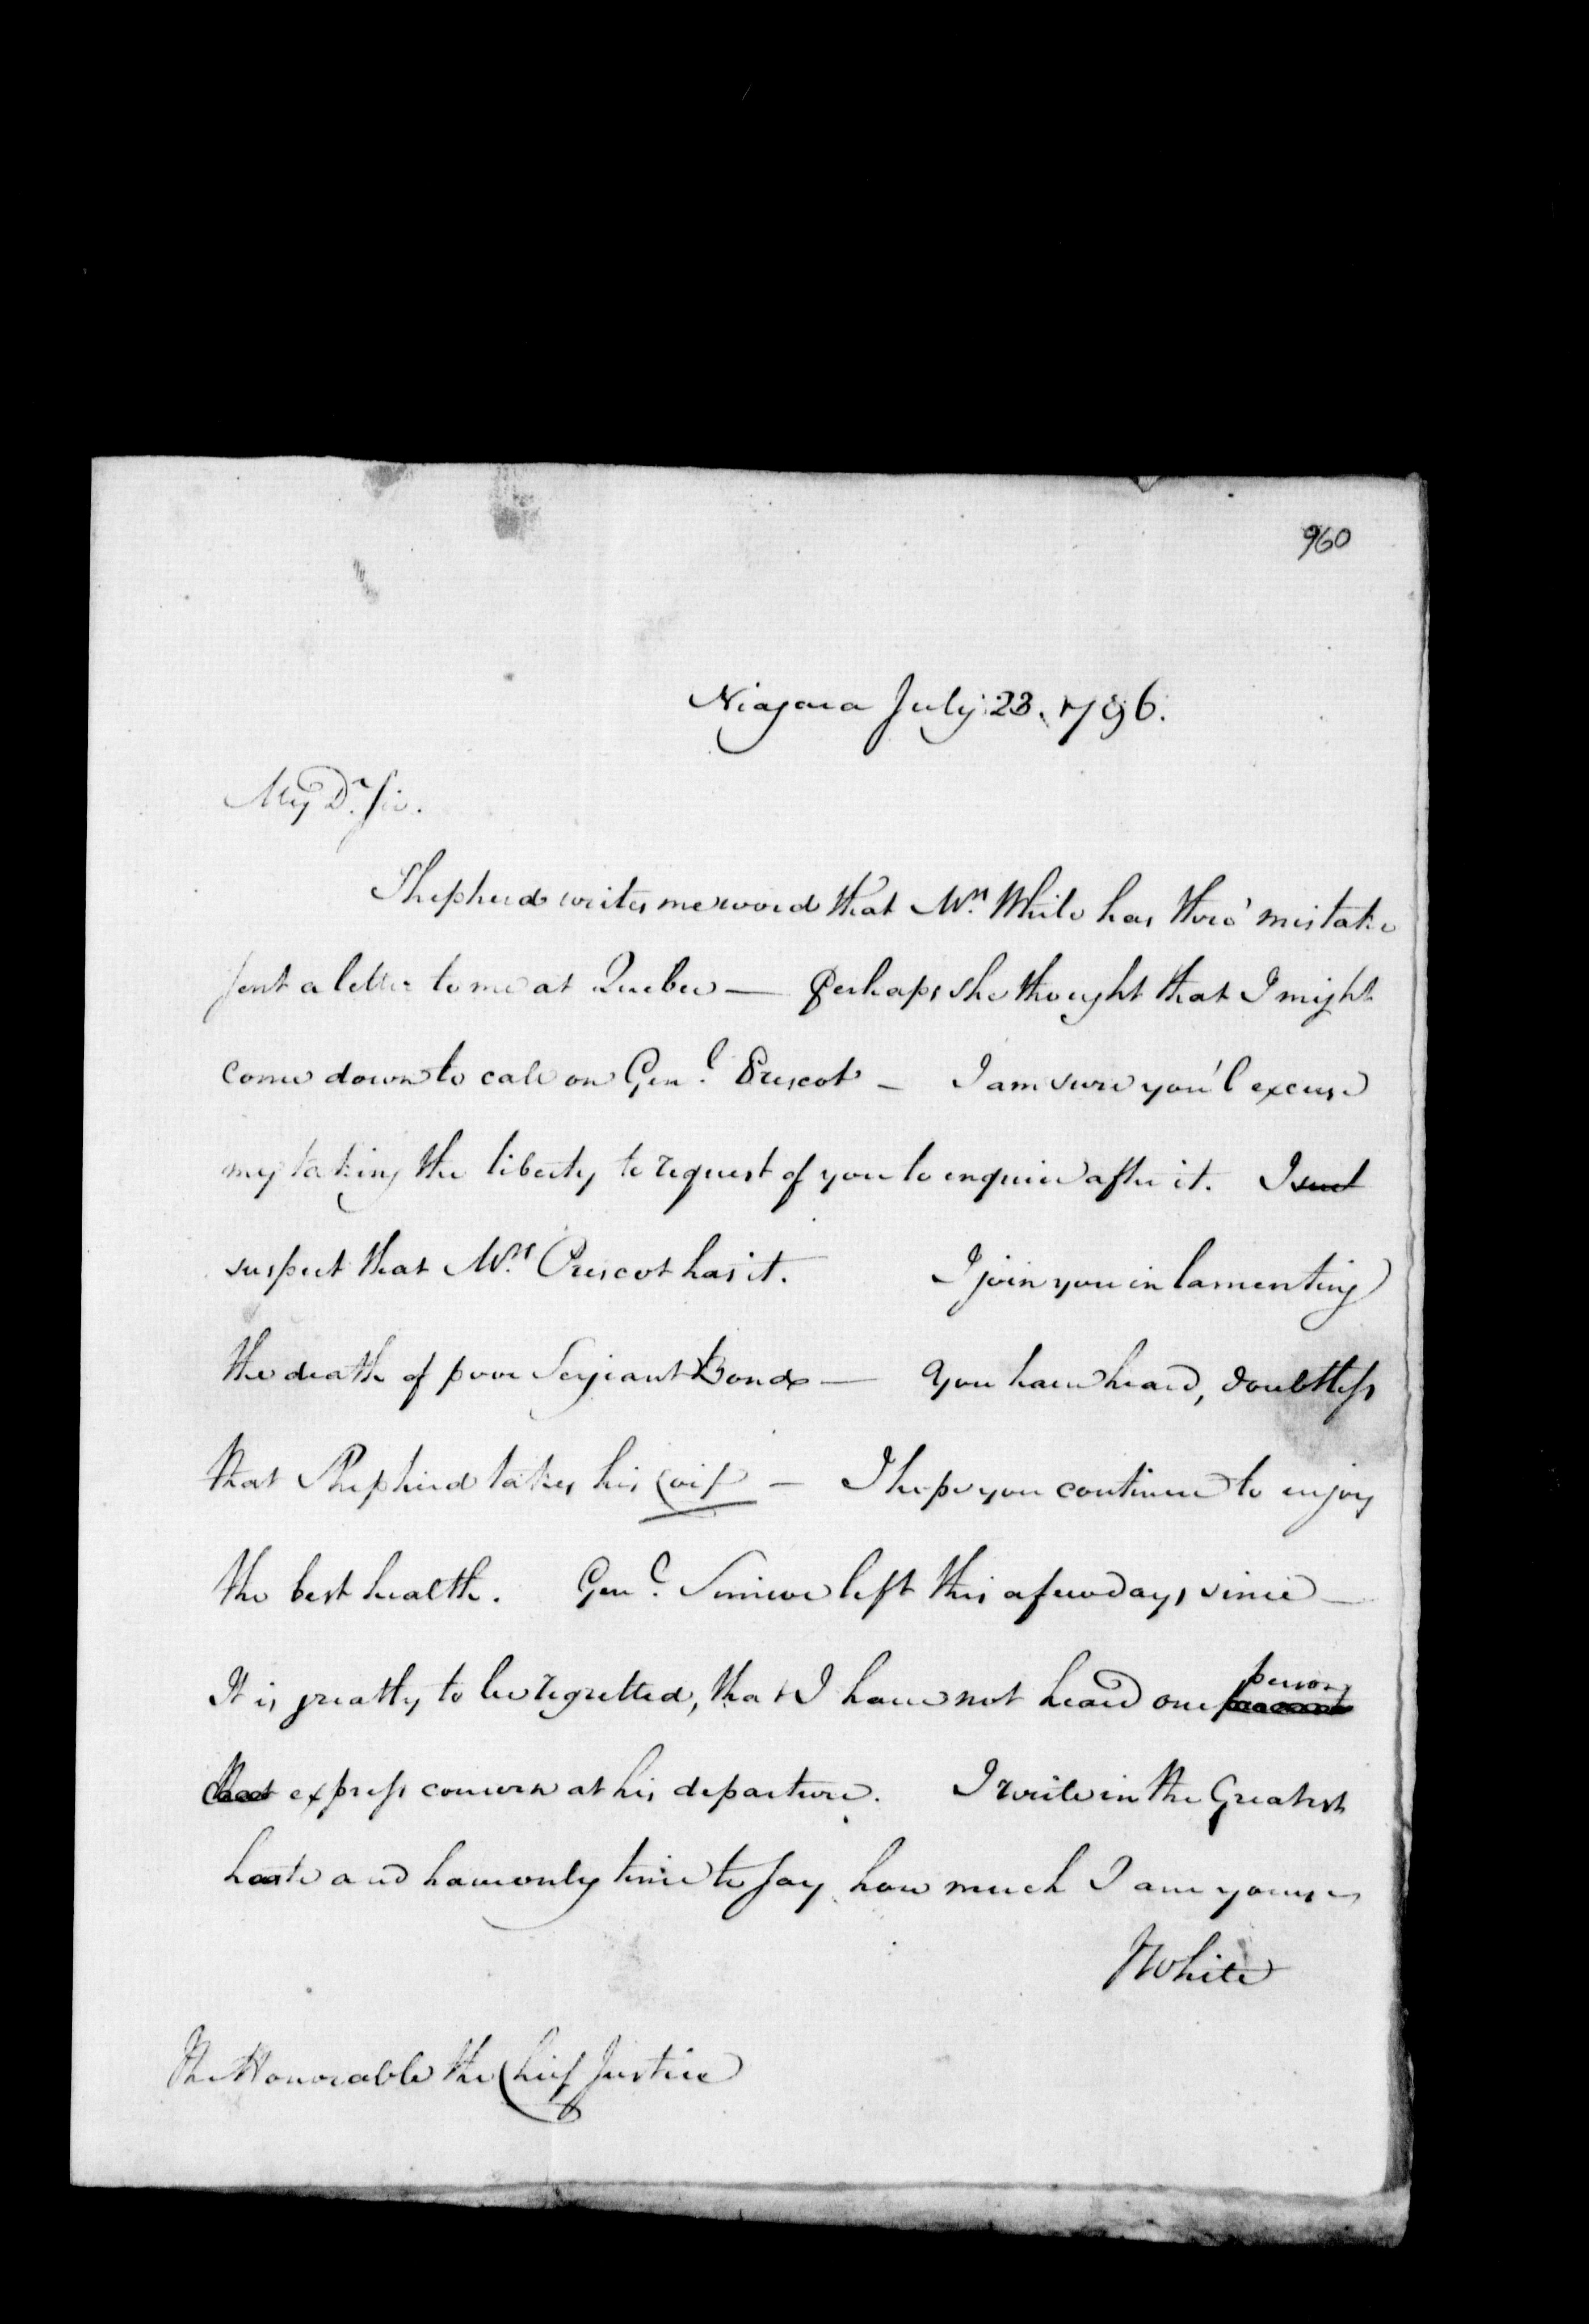 960
Niagara July 23. 1796.
My Dr. Sir.
Shepherd writes me word that Mrs. White has thro' mistake
sent a letter to me at Quebec — Perhaps she thought that I might
come down to call on Genl. Prescot – I am sure you'l excuse
my taking the liberty to request of you to enquire after it. I
suspect that Mrs. Prescot has it. I join you in lamenting
the death of poor Serjeant Bond — You have heard, doubtless
that Shepherd takes his Coif – I hope you continue to enjoy
the best health. Genl. Simcoe left this a few days since —
It is greatly to be regretted, that I have not heard one person
express concern at his departure. I write in the Greatest
haste and have only time to say how much I am yours
JWhite
The Honorable the Chief Justice